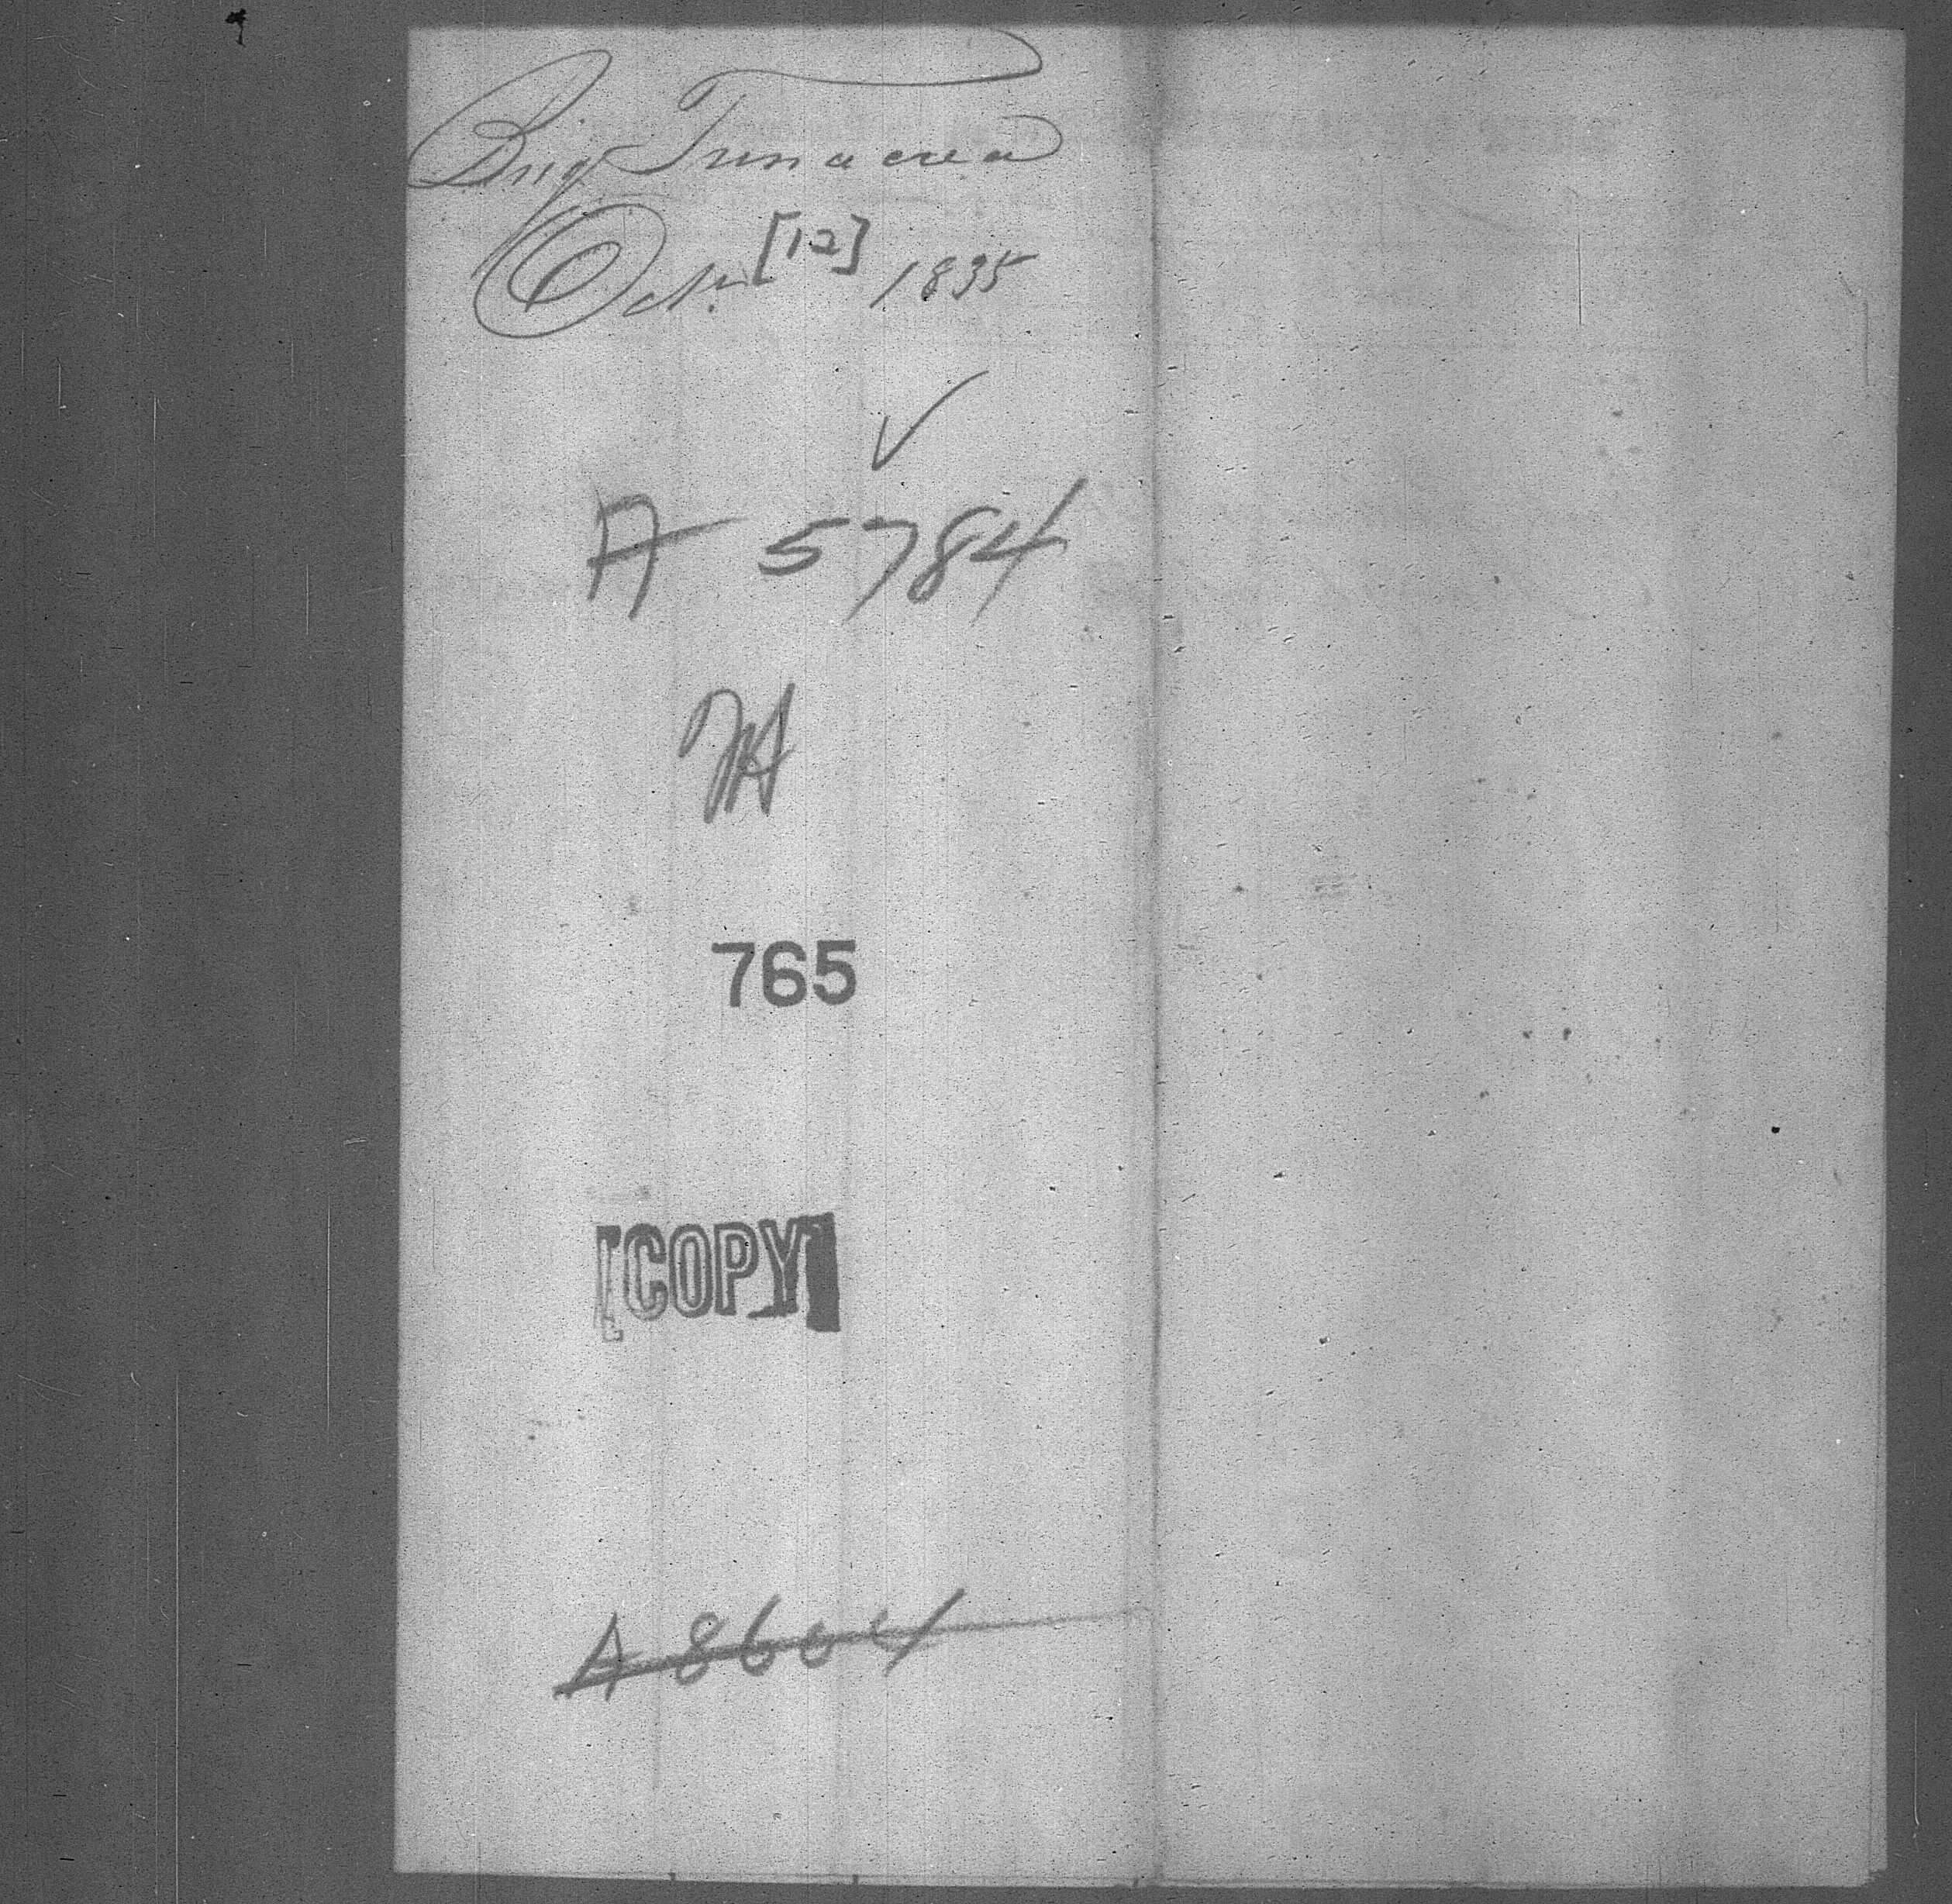 Brig Trinacrea
Octr. [12] 1835
✓
A 5784
765
[COPY]
A 8604